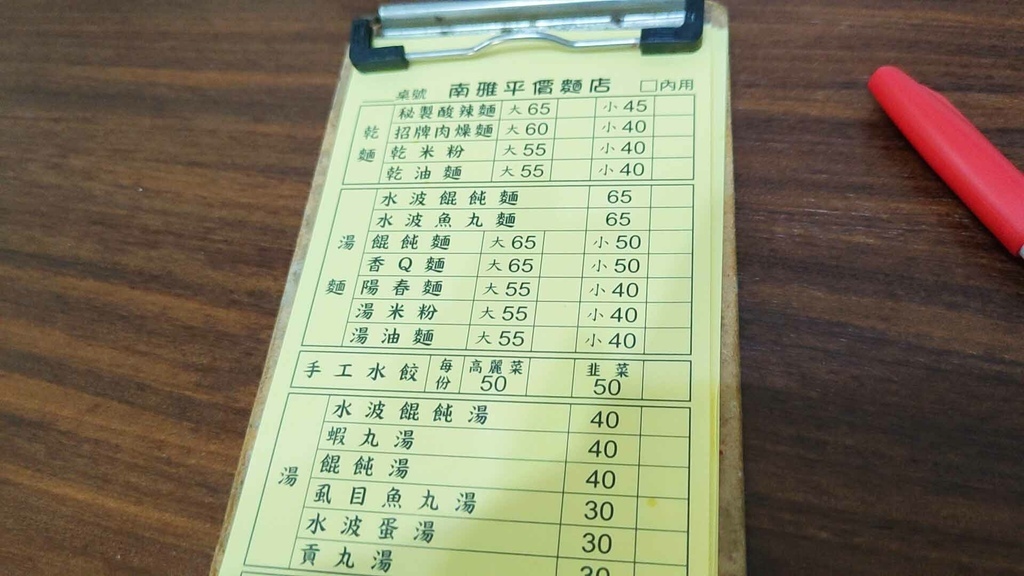 桌號 南雅平價麵店 □內用
乾麵
秘製酸辣麵 大65 小45
招牌肉燥麵 大60 小40
乾米粉 大55 小40
乾油麵 大55 小40
湯麵
水波餛飩麵 65
水波魚丸麵 65
餛飩麵 大65 小50
香Q麵 大65 小50
陽春麵 大55 小40
湯米粉 大55 小40
湯油麵 大55 小40
手工水餃 每份 高麗菜50 韭菜50
湯
水波餛飩湯 40
蝦丸湯 40
餛飩湯 40
虱目魚丸湯 30
水波蛋湯 30
貢丸湯 30